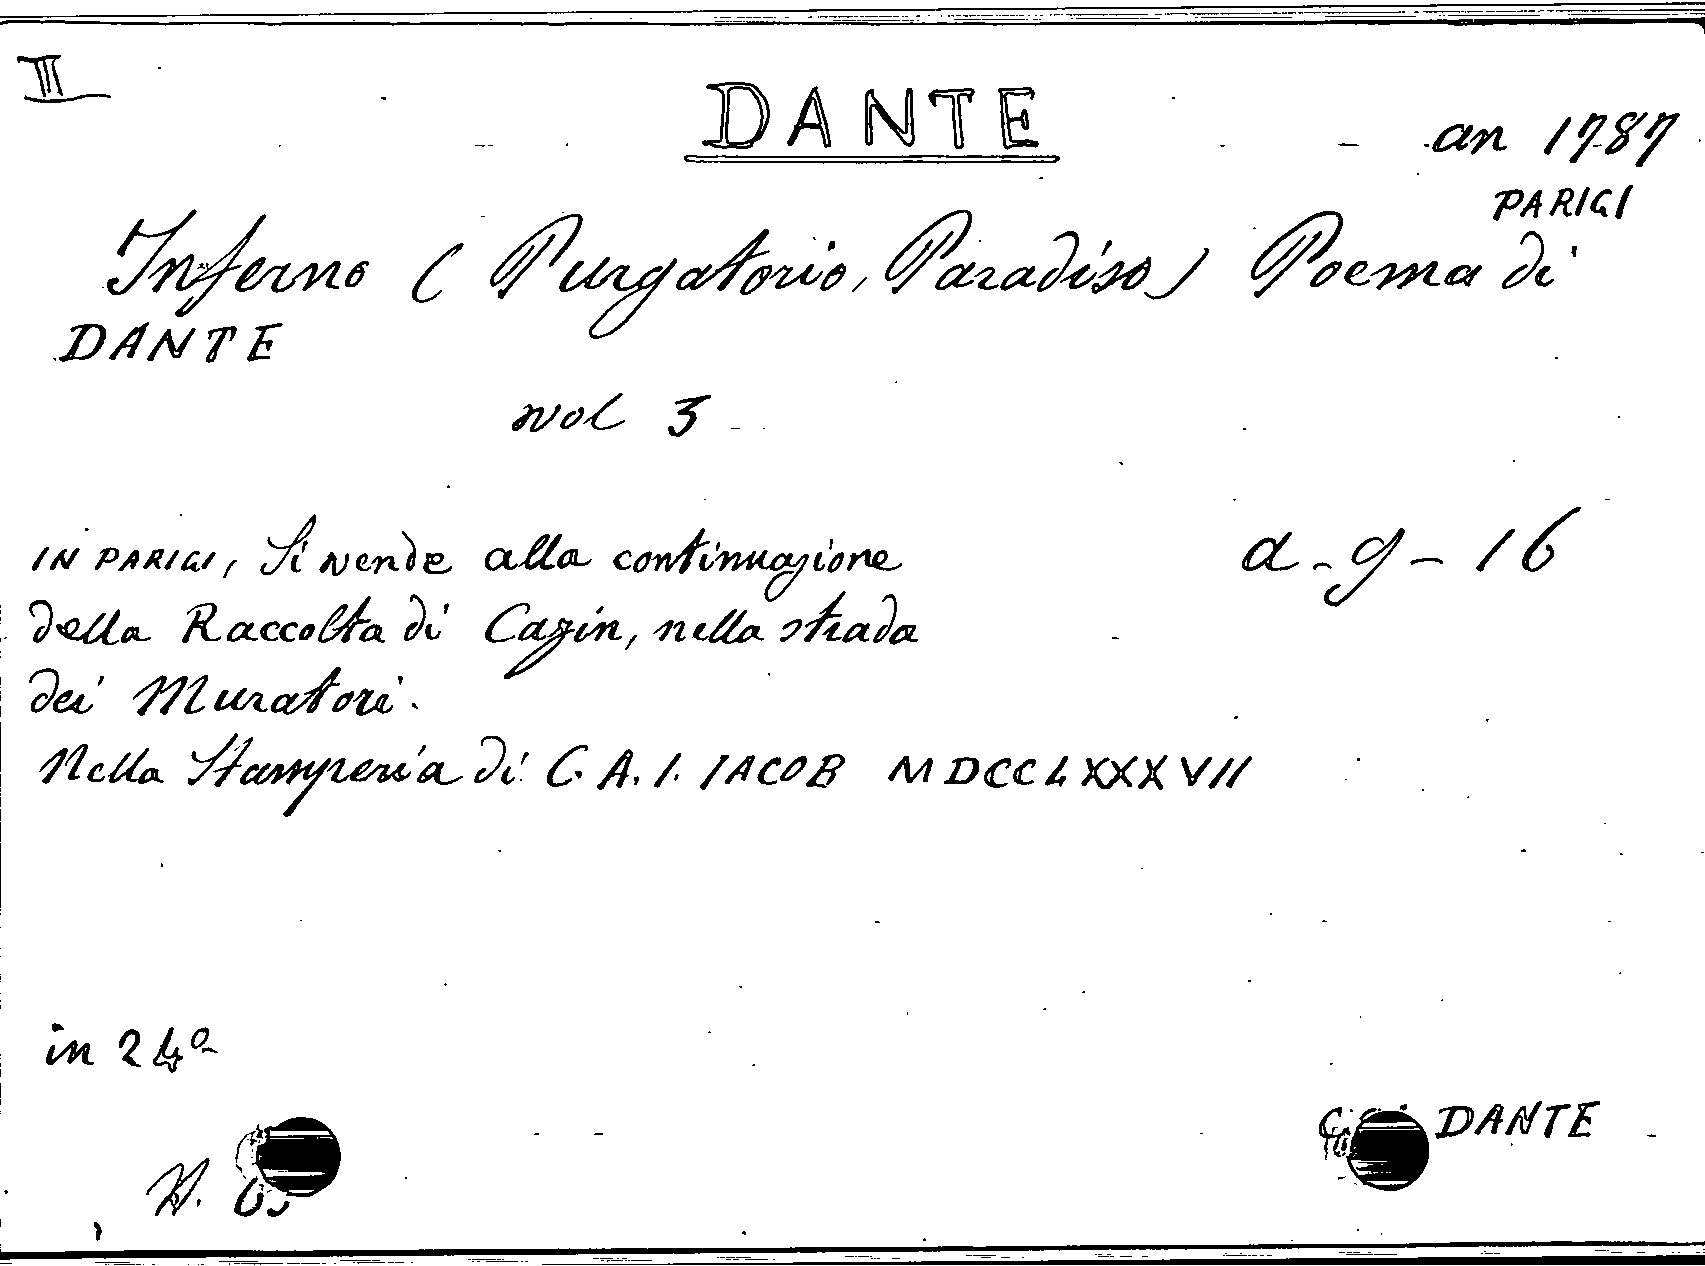 III
DANTE
an 1787
PARIGI
Inferno (Purgatorio, Paradiso) Poema di
DANTE
vol 3
IN PARIGI, Si vende alla continuazione
a-g-16
della Raccolta di Cazin, nella strada
dei Muratori.
Nella Stamperia di C. A. I. IACOB MDCCLXXXVII
in 24º
DANTE
N.